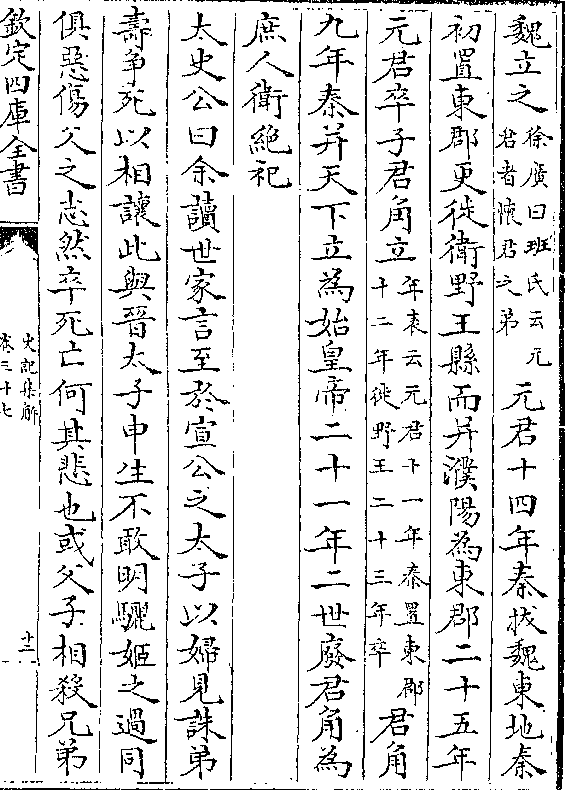 魏立之徐廣曰班氏云元君者懷君之弟元君十四年秦拔魏東地秦
初置東郡更徙衛野王縣而并濮陽為東郡二十五年
元君卒子君角立年表云元君十一年秦置東郡十二年徙野王二十三年卒君角
九年秦并天下立為始皇帝二十一年二世廢君角為
庶人衛絕祀
太史公曰余讀世家言至於宣公之太子以婦見誅弟
壽爭死以相讓此與晉太子申生不敢明驪姬之過同
俱惡傷父之志然卒死亡何其悲也或父子相殺兄弟
欽定四庫全書
史記集解
卷三十七
十二